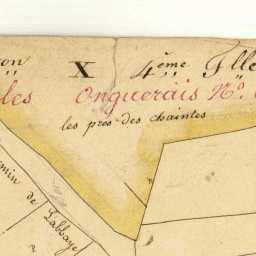 on X 4ème Flle
les Onguerais No.
les pres des chaintes
min de Labbaye